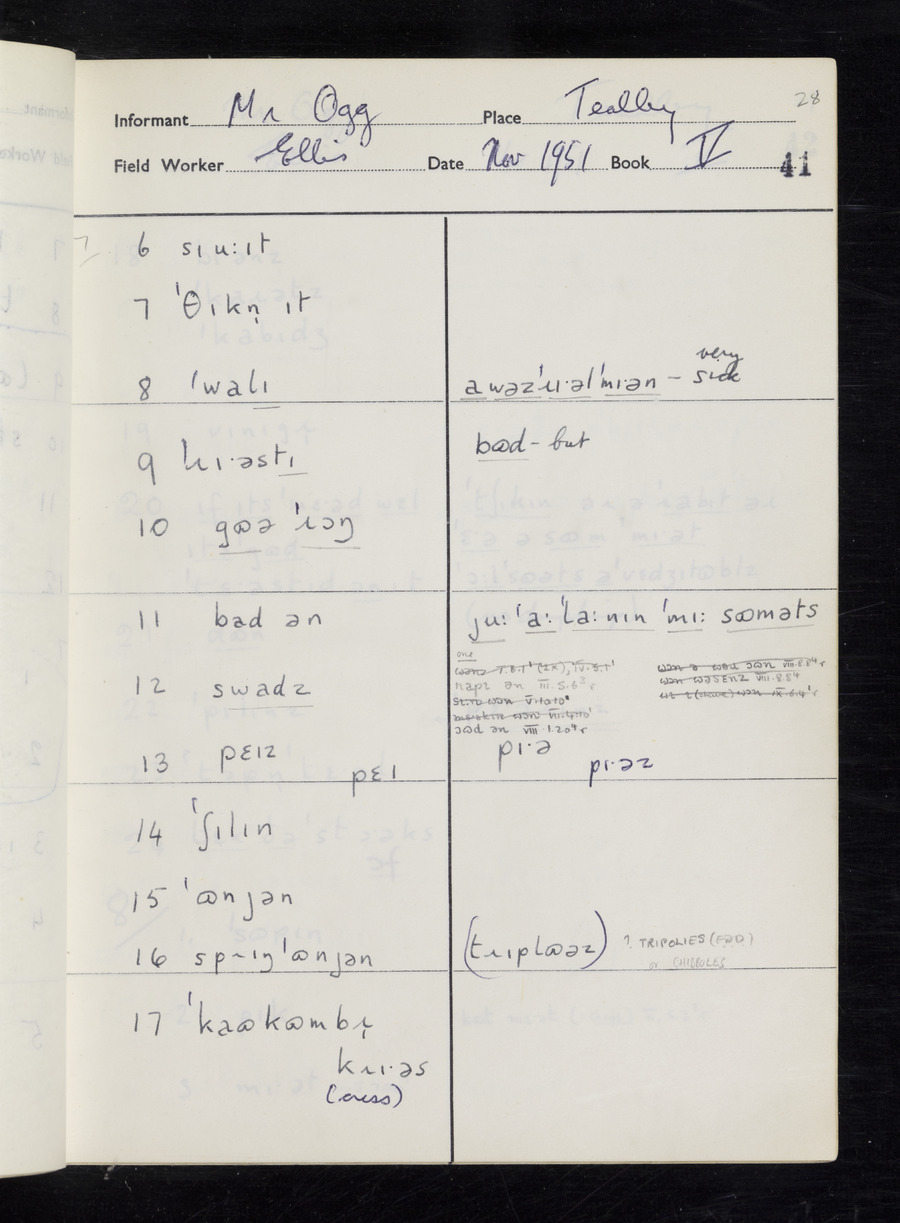 28
Informant Mr Ogg Place Tealby
Field Worker Ellis Date Nov 1951 Book IV 41
7
6 sɪ u:ɪt
7 ˈθɪkn̩ ɪt
8 ˈwalɪ
very
a wəzˈɹɪ·əlˈmɪən – sick
9 hɪ·əstɪ
bɷd – but
10 gɷə ˈɹɔŋ
11 bad ən
ju: ˈa: ˈla:nɪn ˈmɪ: sɷməts
12 swadz
one
napɪ ən III.5.6
ɔəd ən VIII.1.20
13 pɛɪz
pɛɪ
pɪ·ə
pɪ·əz
14 ˈʃɪlɪn
15 ˈɷnjən
16 sprɪŋˈɷnjən
(tɹɪplɷəz) ? TRIPOLIES (EDD)
or CHIBBLES
17 ˈkaɷkɷmbɹ̩
kɹɪ·əs
(cress)